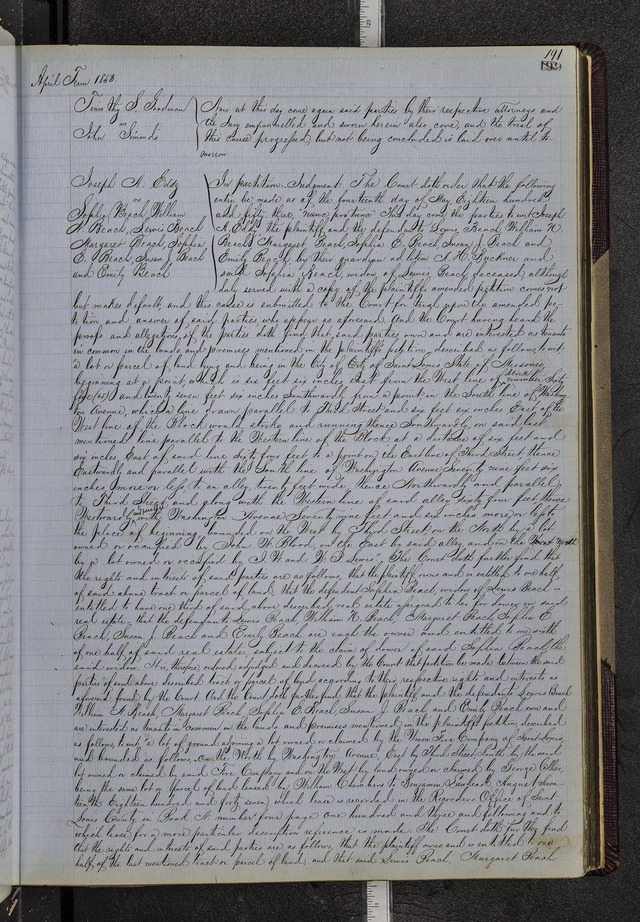 191
April Term 1853
Timothy S Goodman
vs
John Simonds
Now at this day come again said parties by their respective attorneys and
the Jury empannelled and sworn herein also come, and the trial of
this cause progressed but not being concluded is laid over until to
morrow
Joseph A. Eddy
vs
Sophia Beach, William
N. Beach, Lewis Beach
Margaret Beach, Sophia
E. Beach Susan J Beach
and Emily Beach
In partition. Judgment. The Court doth order that the following
entry be made as of the fourteenth day of May Eighteen hundred
and fifty three, "nunc pro tunc" This day come the parties to wit Joseph
A Eddy the plaintiff and the defendants Lewis Beach, William N.
Beach Margaret Beach, Sophia E. Beach Susan J Beach and
Emily Beach by their guardian ad litem A. H. Buckner and
said Sophia Beach, widow of Lewis Beach deceased, although
duly served with a copy of the plaintiffs amended petition comes not
but makes default, and this case is submitted to the Court for trial upon the amended pe-
tition and answer of said parties who appear as aforesaid. And the Court having heard the
proofs and allegations of the parties doth find that said parties now and are interested as tenants
in common in the lands and premises mentioned in the plaintiffs petition, described as follows, to wit
a lot or parcel of land lying and being in the City of Saint Louis State of Missouri
beginning at a point which is six feet six inches East from the West line of Block number Sixty
five (65) and twenty seven feet six inches Southwardly from a point in the South line of Washing
ton Avenue, which a line drawn parallel to Third Street and six feet six inches East of the
West line of the Block would strike and running thence Southwardly on said last
mentioned line parallel to the Western line of the Block at a distance of six feet and
six inches East of said line sixty four feet to a point on the East line of Third Street, thence
Eastwardly and parallel with the South line of Washington Avenue Seventy nine feet six
inches more or less to an alley twenty feet wide, thence Northwardly and parallel
to Third Street and along with the Western line of said alley sixty four feet thence
Westwardly and parallel with Washington Avenue Seventy nine feet and six inches more or less to
the place of beginning bounded on the West by Third Street on the North by a lot
owned or occupied by John W Blood, on the East by said alley and on the South
by a lot owned or occupied by J. W. and W. J Lewis". The Court doth further find that
the rights and interests of said parties are as follows, that the plaintiff owns and is entitled to one half,
of said above tract or parcel of land, that the defendant Sophia Beach, widow of Lewis Beach is
entitled to have one third of said above described real estate assigned to her for dower in said
real estate, that the defendants Lewis Beach William N. Beach, Margaret Beach, Sophia E.
Beach, Susan J. Beach and Emily Beach are each the owner and entitled to one sixth
of one half of said real estate, subject to the claim of dower of said Sophia Beach, the
said widow. It is, therefore, ordered, adjudged and decreed by the Court that partition be made between the said
parties of said above described tract or parcel of land according to their respective rights and interests as
aforesaid found by the Court. And the Court doth further find, that the plaintiff, and the defendants Lewis Beach
William N. Beach Margaret Beach, Sophia E. Beach, Susan J. Beach and Emily Beach own and
are interested as tenants in common in the lands and premises mentioned in the plaintiffs petition described
as follows, to wit, "a lot of ground adjoining a lot owned or claimed by the Union Fire Company of Saint Louis,
and bounded as follows, On the North by Washington Avenue, East by Third Street, South by
lot owned or claimed by said Fire Company and on the West by land owned or claimed by George Collier,
being the same lot or parcel of land leased by William Chambers to Benjamin August Seven
teenth Eighteen hundred and forty seven, which lease is recorded in the Recorders Office of Saint
Louis County in Book N. number four page one hundred and three and following and to
which lease for a more particular description reference is made. The Court doth further find
that the rights and interests of said parties are as follows, that the plaintiff owns and is entitled to one
half of the last mentioned tract or parcel of land, and that said Lewis Beach, Margaret Beach